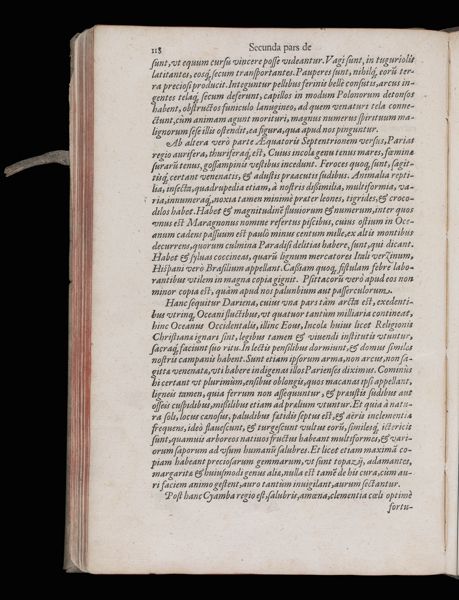 118 Secunda pars de
sunt, vt equum cursu vincere posse videantur. Vagi sunt, in tuguriolis
latitantes, eosq́; secum transportantes. Pauperes sunt, nihilq́; eorũ ter-
ra preciosi producit. Integuntur pellibus ferinis bellè consutis, arcus in-
gentes telaq́; secum deferunt, capillos in modum Polonorum detonsos
habent, obstructos funiculo lanugineo, ad quem venaturi tela conne-
ctunt, cùm animam agunt morituri, magnus numerus spirituum ma-
lignorum sese illis ostendit, ea figura, qua apud nos pinguntur.
Ab altera verò parte Æquatoris Septentrionem versus, Parias
regio aurifera, thuriferaq́; est, Cuius incolæ genu tenus mares, fœminæ
surarũ tenus, gossampinis vestibus incedunt. Feroces quoq́; sunt, sagit-
tisq́; certant venenatis, & adustis præacutis sudibus. Animalia repti-
lia, insecta, quadrupedia etiam, à nostris dissimilia, multiformia, va-
ria, innumeraq́;, noxia tamen minimè præter leones, tigrides, & croco-
dilos habet. Habet & magnitudinẽ fluuiorum & numerum, inter quos
vnus est Maragnonus nomine refertus piscibus, cuius ostium in Oce-
anum cadens passuum est paulò minus centum mille, ex altis montibus
decurrens, quorum culmina Paradisi delitias habere, sunt, qui dicant.
Habet & syluas coccineas, quarũ lignum mercatores Itali verzinum,
Hispani verò Brasilium appellant. Casiam quoq́; fistulam febre labo-
rantibus vtilem in magna copia gignit. Psittacorũ verò apud eos non
minor copia est, quàm apud nos palumbium aut passerculorum.
Hanc sequitur Dariena, cuius vna pars tàm arcta est, exedenti-
bus vtrinq; Oceani fluctibus, vt quatuor tantùm milliaria contineat,
hinc Oceanus Occidentalis, illinc Eous, Incolæ huius licet Religionis
Christianæ ignari sint, legibus tamen & viuendi institutis vtuntur,
sacraq́; faciunt suo ritu. In lectis pensilibus dormiunt, & domus similes
nostris campanis habent. Sunt etiam ipsorum arma, non arcus, non sa-
gittæ venenatæ, vti habere indigenas illos Parienses diximus. Cominùs
hi certant vt plurimùm, ensibus oblongis, quos macanas ipsi appellant,
ligneis tamen, quia ferrum non assequuntur, & præustis sudibus aut
osseis cuspidibus, missilibus etiam ad prælium vtuntur. Et quia à natu-
ra soli, locus cœnosus, paludibus fœtidis septus est, & aëris inclementia
frequens, ideò flauescunt, & turgescunt vultus eorũ, similesq́; ictericis
sunt, quamuis arboreos natiuos fructus habeant multiformes, & vari-
orum saporum ad vsum humanũ salubres. Et licet etiam maximã co-
piam habeant preciosarum gemmarum, vt sunt topazij, adamantes,
margaritæ & huiusmodi genus alia, nulla est tamẽ de his cura, cùm au-
ri faciem animo gestent, auro tantùm inuigilant, aurum sectantur.
Post hanc Cyamba regio est, salubris, amœna, clementia cœli optimè
fortu-